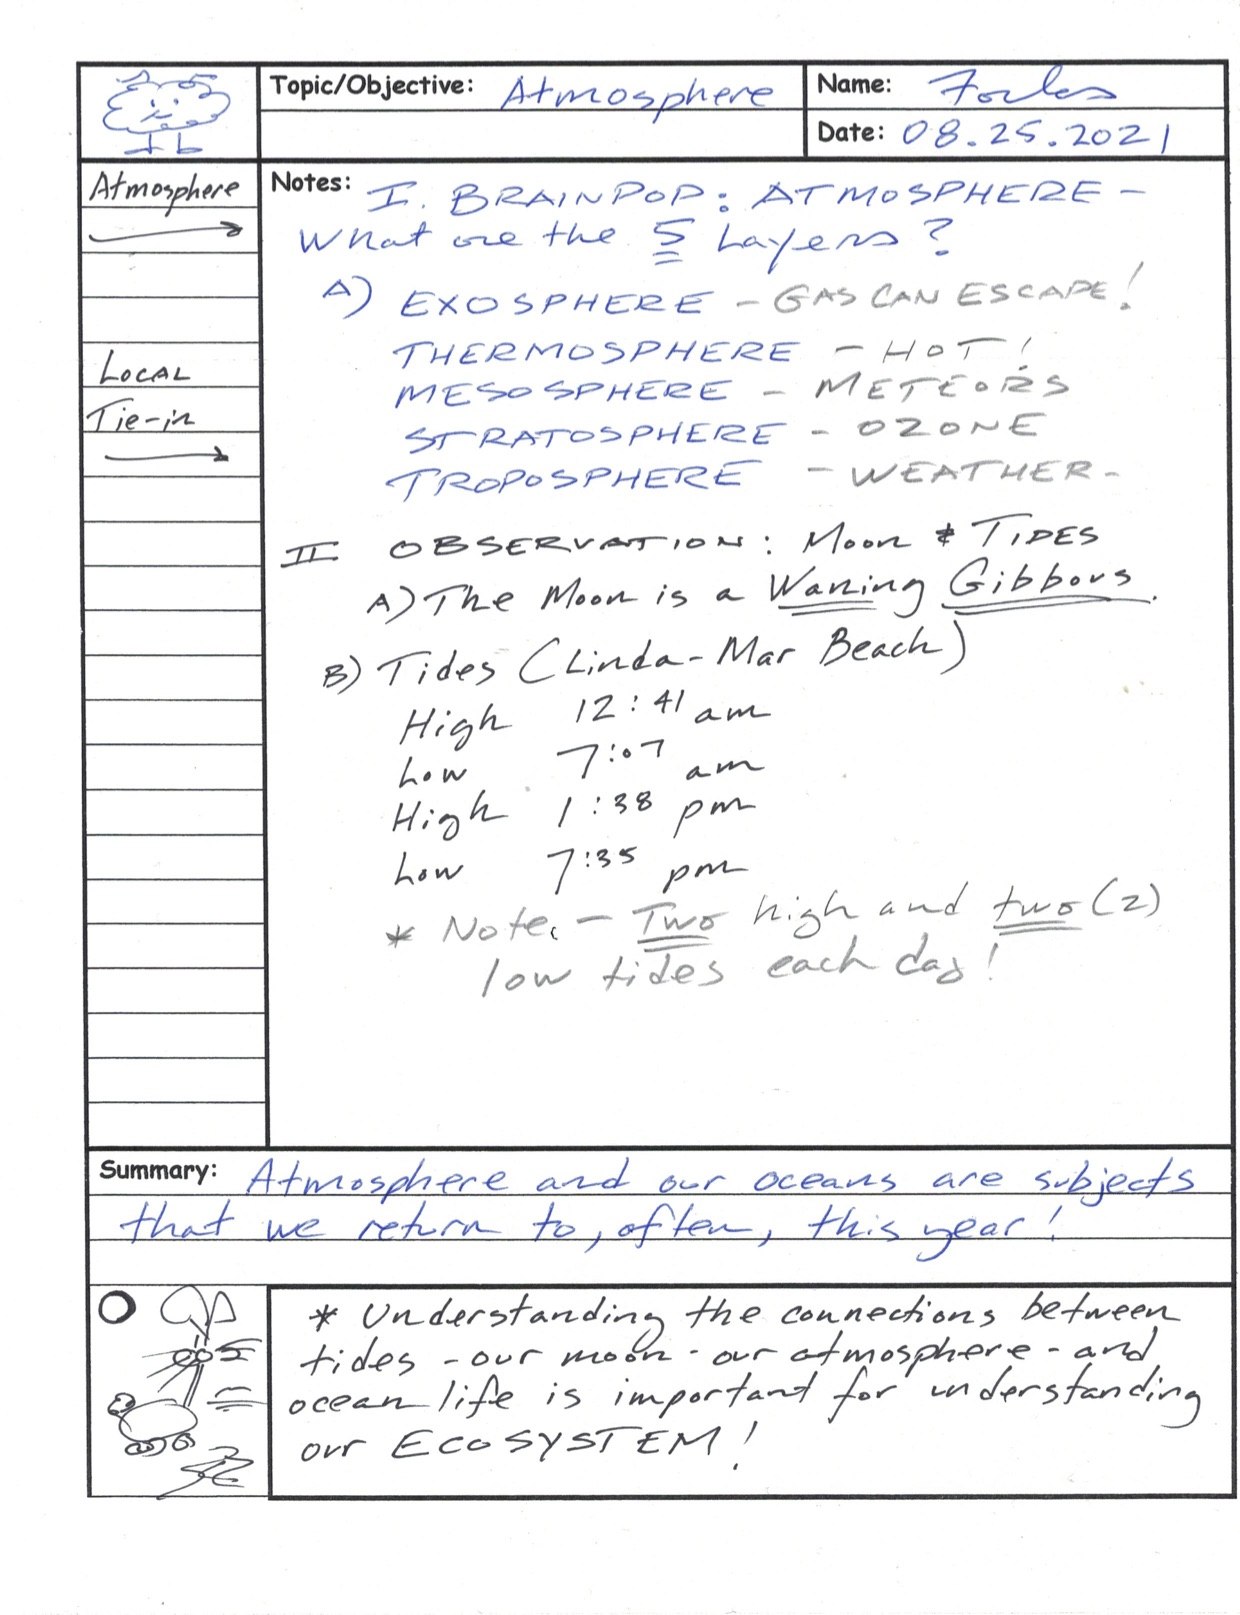 Topic/Objective: Atmosphere
Name:
Date: 08.25.2021
Atmosphere
Local
Tie-in
Notes: I. BRAINPOP: ATMOSPHERE -
What are the 5 Layers?
A) EXOSPHERE - GAS CAN ESCAPE!
THERMOSPHERE - HOT!
MESOSPHERE - METEORS
STRATOSPHERE - OZONE
TROPOSPHERE - WEATHER -
II OBSERVATION: Moon & TIDES
A) The Moon is a Waning Gibbous.
B) Tides (Linda-Mar Beach)
High 12:41 am
Low 7:07 am
High 1:38 pm
Low 7:35 pm
* Note: - Two high and two (2)
low tides each day!
Summary: Atmosphere and our oceans are subjects
that we return to, often, this year!
* Understanding the connections between
tides - our moon - our atmosphere - and
ocean life is important for understanding
our ECOSYSTEM!